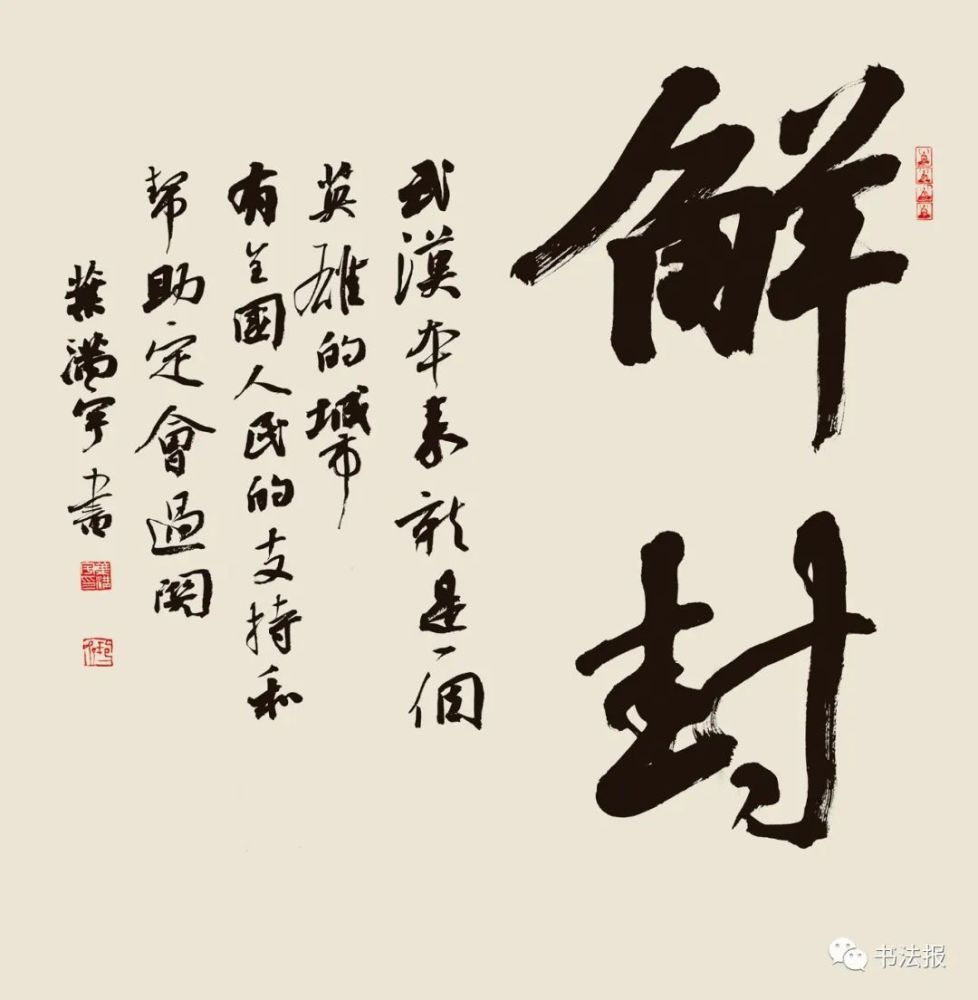 解封
武漢本来就是一個
英雄的城市
有全國人民的支持和
幇助定會過関
葉滿宇書
书法报